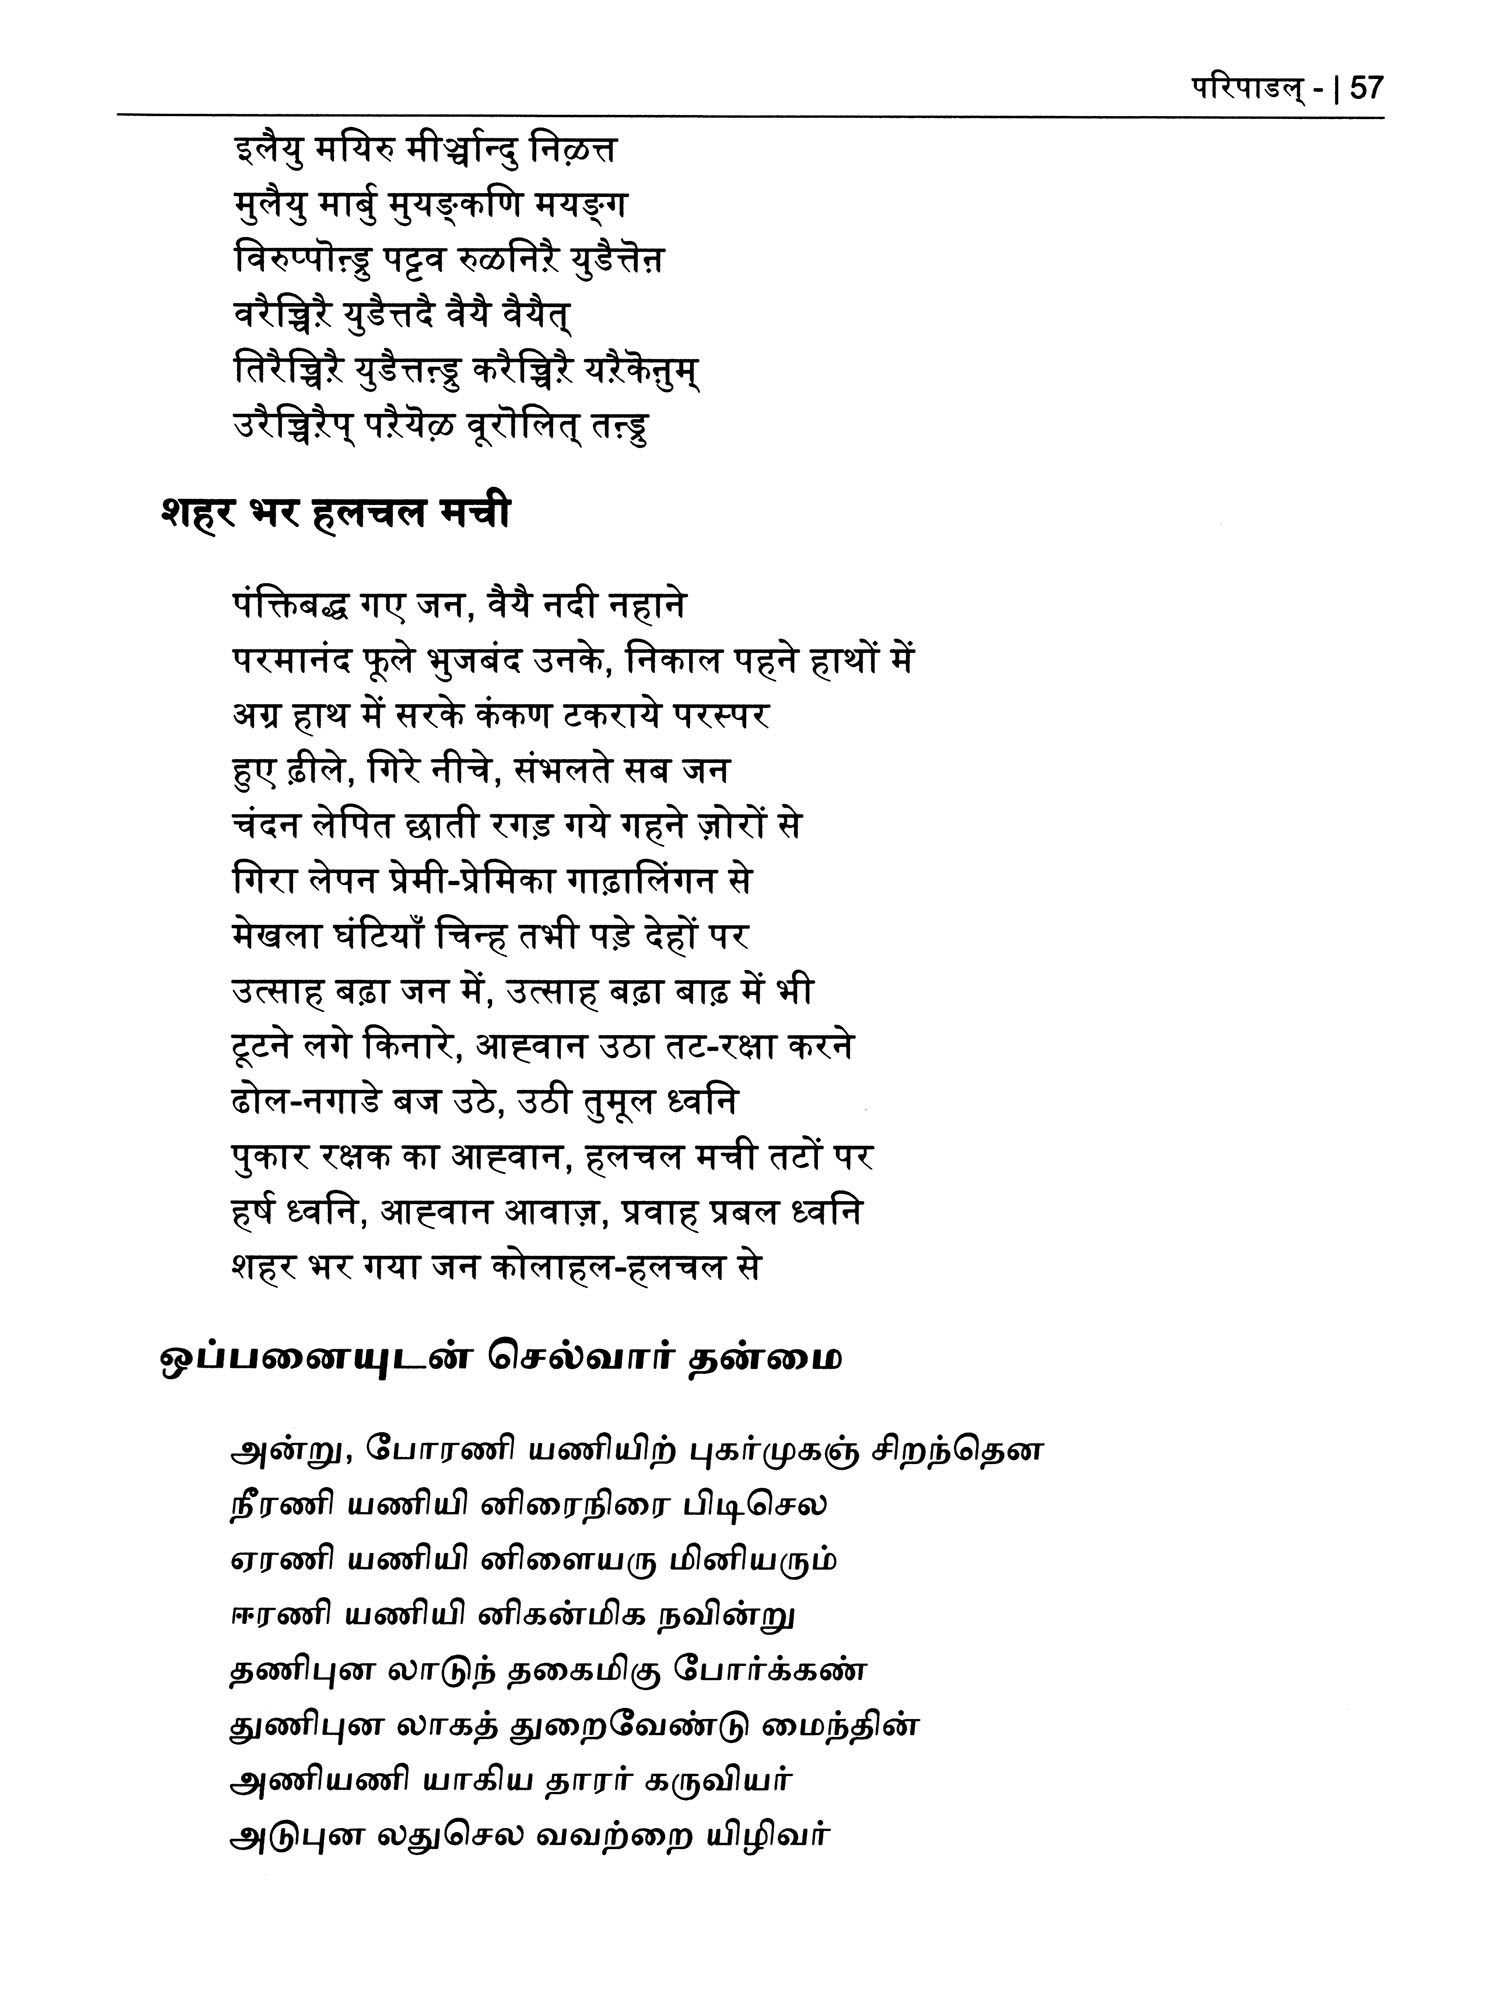 परिपाडल् - | 57
इलैयु मयिरु मीर्ञ्चान्दु निऴत्त
मुलैयु मार्बु मुयङ्कणि मयङ्ग
विरुप्पॊऩ्ड्रु पट्टव रुळनिऱै युडैत्तॆऩ
वरैच्चिऱै युडैत्तदै वैयै वैयैत्
तिरैच्चिऱै युडैत्तऩ्ड्रु करैच्चिऱै यऱैकॆऩुम्
उरैच्चिऱैप् पऱैयॆऴ वूरॊलित् तऩ्ड्रु
शहर भर हलचल मची
पंक्तिबद्ध गए जन, वैयै नदी नहाने
परमानंद फूले भुजबंद उनके, निकाल पहने हाथों में
अग्र हाथ में सरके कंकण टकराये परस्पर
हुए ढ़ीले, गिरे नीचे, संभलते सब जन
चंदन लेपित छाती रगड़ गये गहने ज़ोरों से
गिरा लेपन प्रेमी-प्रेमिका गाढ़ालिंगन से
मेखला घंटियाँ चिन्ह तभी पड़े देहों पर
उत्साह बढ़ा जन में, उत्साह बढ़ा बाढ़ में भी
टूटने लगे किनारे, आह्वान उठा तट-रक्षा करने
ढोल-नगाडे बज उठे, उठी तुमूल ध्वनि
पुकार रक्षक का आह्वान, हलचल मची तटों पर
हर्ष ध्वनि, आह्वान आवाज़, प्रवाह प्रबल ध्वनि
शहर भर गया जन कोलाहल-हलचल से
ஒப்பனையுடன் செல்வார் தன்மை
அன்று, போரணி யணியிற் புகர்முகஞ் சிறந்தென
நீரணி யணியி னிரைநிரை பிடிசெல
ஏரணி யணியி னிளையரு மினியரும்
ஈரணி யணியி னிகன்மிக நவின்று
தணிபுன லாடுந் தகைமிகு போர்க்கண்
துணிபுன லாகத் துறைவேண்டு மைந்தின்
அணியணி யாகிய தாரர் கருவியர்
அடுபுன லதுசெல வவற்றை யிழிவர்